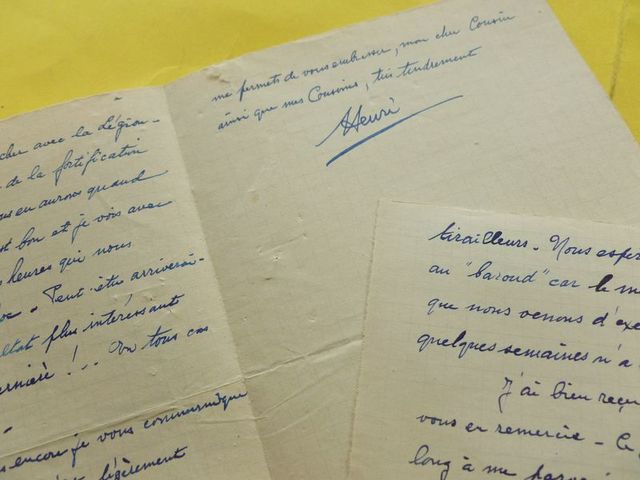 me permets de vous embrasser, mon cher Cousin
ainsi que mes Cousines, très tendrement
Henri
cher avec la Légion-
de la fortification
en aurons quand
bon et je vois avec
heures qui nous
Peut-être arriverai-
plus intéressant
dernière !... En tous cas
encore je vous communique
légèrement
tirailleurs - Nous espér
au "baroud" car le m
que nous venons d'exé
quelques semaines n'a
J'ai bien reçu
vous en remercie - Ce
long à me parvenir